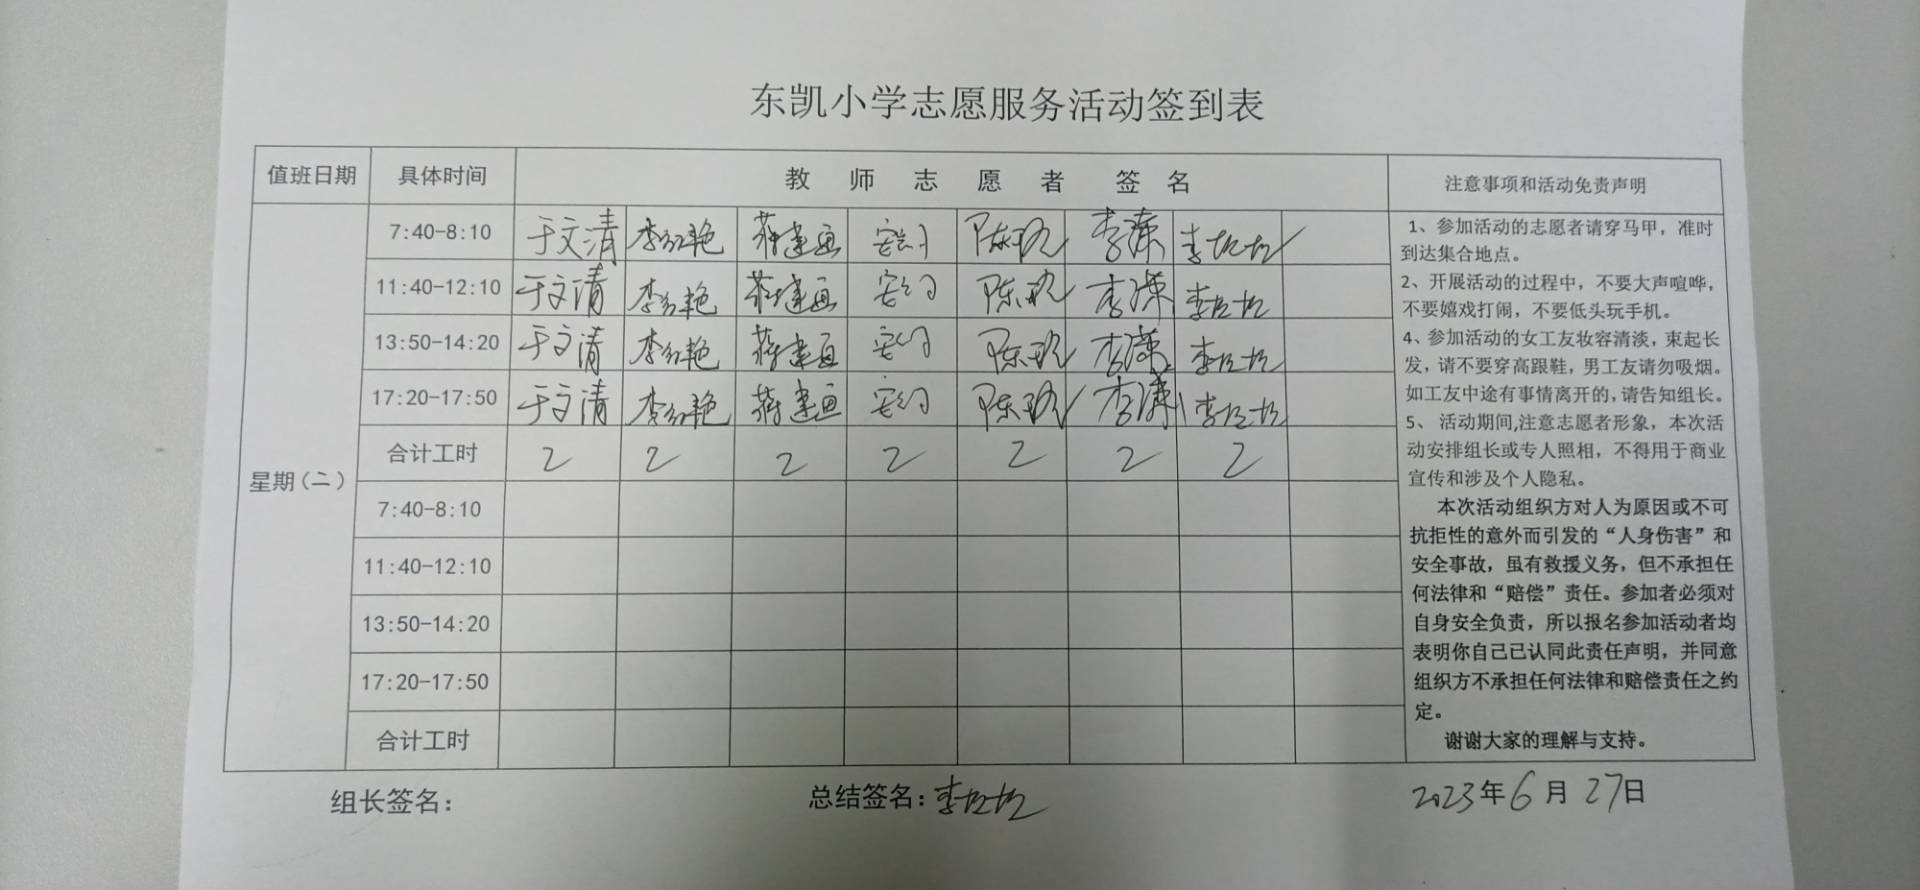 东凯小学志愿服务活动签到表
值班日期 具体时间 教师志愿者签名 注意事项和活动免责声明
星期(二)
7:40-8:10 于文清 李红艳 蒋建国 陈 李 李
11:40-12:10 于文清 李红艳 蒋建国 陈 李 李
13:50-14:20 于文清 李红艳 蒋建国 陈 李 李
17:20-17:50 于文清 李红艳 蒋建国 陈 李 李
合计工时 2 2 2 2 2 2 2
7:40-8:10
11:40-12:10
13:50-14:20
17:20-17:50
合计工时
1、参加活动的志愿者请穿马甲，准时
到达集合地点。
2、开展活动的过程中，不要大声喧哗，
不要嬉戏打闹，不要低头玩手机。
4、参加活动的女工友妆容清淡，束起长
发，请不要穿高跟鞋，男工友请勿吸烟。
如工友中途有事情离开的，请告知组长。
5、 活动期间,注意志愿者形象，本次活
动安排组长或专人照相，不得用于商业
宣传和涉及个人隐私。
本次活动组织方对人为原因或不可
抗拒性的意外而引发的“人身伤害”和
安全事故，虽有救援义务，但不承担任
何法律和“赔偿”责任。参加者必须对
自身安全负责，所以报名参加活动者均
表明你自己已认同此责任声明，并同意
组织方不承担任何法律和赔偿责任之约
定。
谢谢大家的理解与支持。
组长签名： 总结签名：李 2023年6月27日